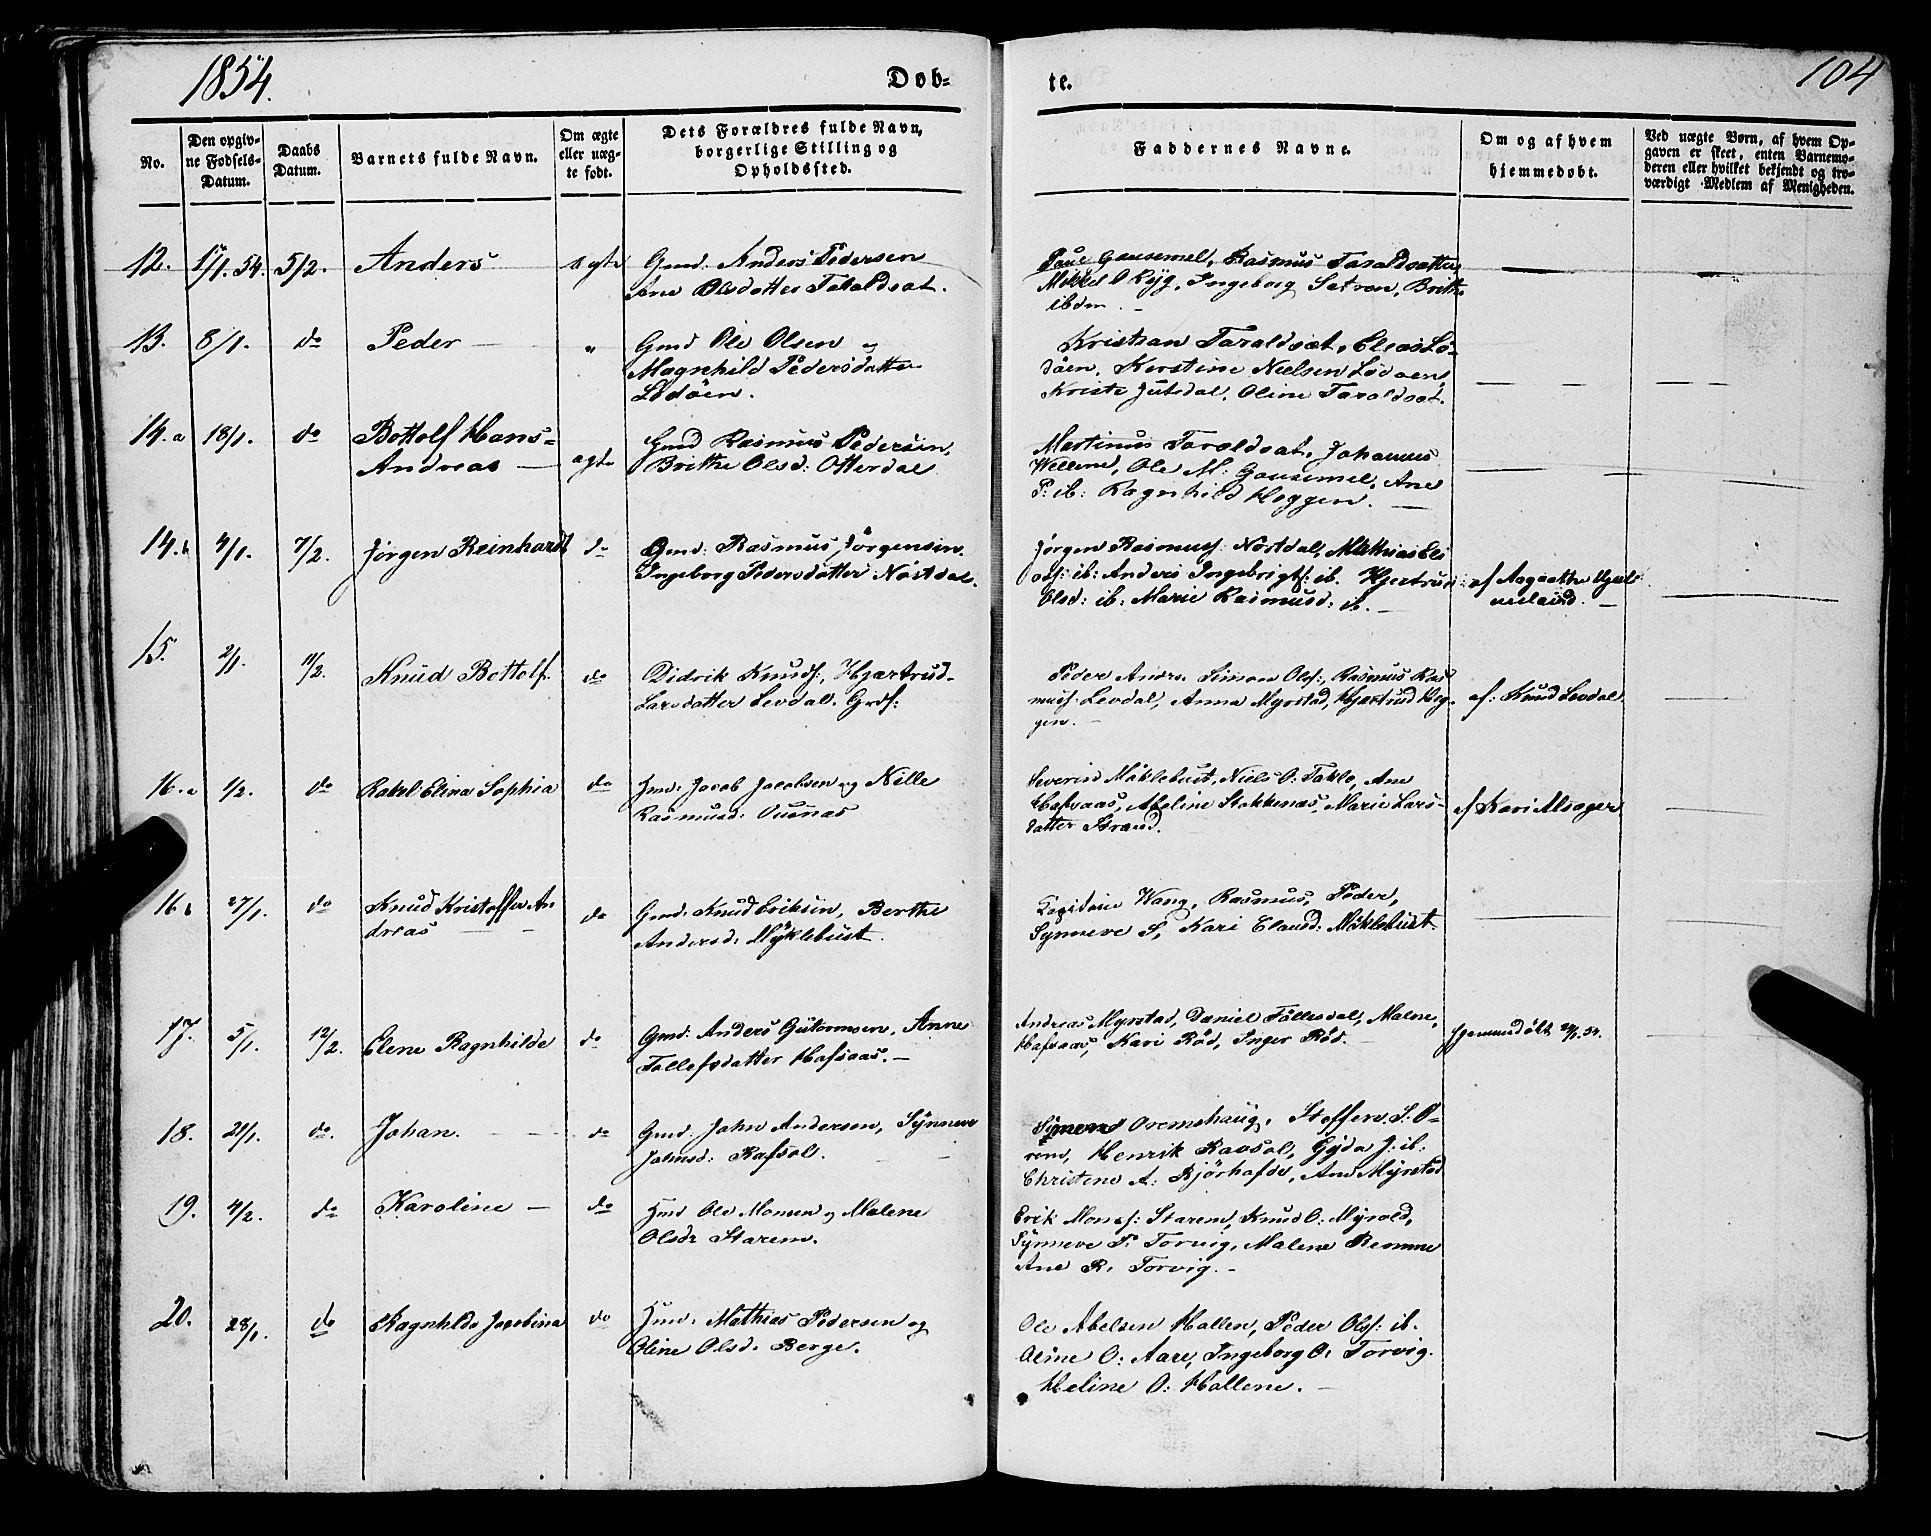 1854.
Døb-
te.
104
No.
Den opgiv-
ne Fødsels-
Datum.
Daabs
Datum.
Barnets fulde Navn.
Om ægte
eller uæg-
te født.
Dets Forældres fulde Navn,
borgerlige Stilling og
Opholdssted.
Faddernes Navne.
Om og af hvem
hjemmedøbt.
Ved uægte Børn, af hvem Op-
gaven er skeet, enten Barnemo-
deren eller hvilket bekjendt og tro-
værdigt Medlem af Menigheden.
12. 1/1. 54. 5/2. Anders ægte Gmd: Anders Pedersen
Ane Olsdatter Taraldsæt.
Gausemel, Rasmus Taraldsætter
Mikkel O Ryg, Ingeborg Sætren, Brithe
ibdm.
13. 8/1. do Peder " Gmd Ole Olsen og
Magnhild Pedersdatter
Lødøen.
Kristian Taraldsæt, Elias Lø-
døen, Kerstine Nielsen Lødøen,
Kristi Jutsdal, Oline Taraldsæt.
14.a 18/1. do Bottolf Hans-
Andreas ægte Gmd Rasmus Pedersen,
Brithe Olsd: Otterdal
Martinus Taraldsæt, Johannes
Wellene, Ole M: Gausemel, Ane
P: ib: Ragnhild Heggen.
14.b 4/1. 7/2. Jørgen Reinhardt do Gmd: Rasmus Jørgensen.
Ingeborg Pedersdatter Nøstdal.
Jørgen Rasmusf: Nøstdal, Mathias Eli
asf: ib: Anders Ingebrigtf: ib. Hjertrud
Olsd: ib: Marie Rasmusd: ib.
af Aagaathe Hjelle
15. 2/1. 11/2. Knud Bottolf do Didrik Knudf:, Hjærtrud
Larsdatter Levdal. Grdf:
Peder Andr. Simon Olsf:, Rasmus Ras
musf: Levdal, Anna Myrstad, Hjertrud Heg-
gen.
af: Knud Levdal
16.a 1/2. do Rakel Elina Sophia do Hmd: Jacob Jacobsen og Nille
Rasmusd: Ousnæs
Severin Møklebust, Niels O: Takle, Ane
Hafsaas, Abeline Stokkenæs, Marie Lars-
datter Strand.
af Kari Alsager
16 b 27/1. do Knud Kristoffer An
dreas do Gmd: Knud Eriksen, Berthe
Andersd: Myklebust.
Wang, Rasmus, Peder,
Synneve S, Kari Clausd: Møklebust.
17. 5/1. 12/2. Elene Ragnhilde do Gmd: Anders Guttormsen, Anne
Tollefsdatter Hafsaas.
Andreas Myrstad, Daniel Tøllesdal, Malene,
Hafsaas, Kari Rød, Inger Rød.
Hjemmedøbt 24/1. 54.
18. 21/1. do. Johan. do Gmd: John Andersen, Synneve
Johnsd: Rafsol.
Oremshaug, Steffen S: O-
rem, Henrik Ravsol, Gyda J: ib:
Christine A: Bjørhafde, Ane Myrstad
19. 4/2. do Karoline do Hmd Ole Monsen og Malene
Olsdr Starem.
Erik Monsf: Starem, Knud O: Myrold,
Synneve P: Torvig, Malene Remme
Ane R. Torvig.
20. 28/1. do Ragnhilda Jacobina do Hmd: Mathias Pedersen og
Oline Olsd: Berge.
Ole Abelsen Hallen, Peder Olsf: ib.
Oline O: Aare, Ingeborg O: Torvig.
Heline O: Hallene.